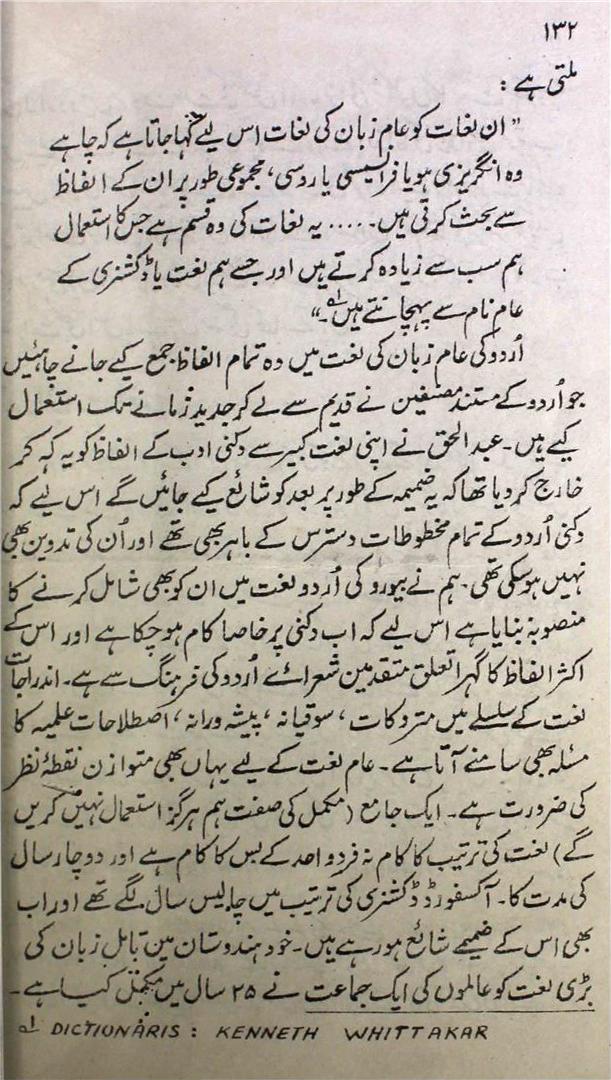 ۱۳۲
ملتی ہے :
” ان لغات کو عام زبان کی لغات اس لیے کہا جاتا ہے کہ چاہے
وہ انگریزی ہو یا فرانسیسی یا روسی، مجموعی طور پر ان کے الفاظ
سے بحث کرتی ہیں۔ ..... یہ لغات کی وہ قسم ہے جس کا استعمال
ہم سب سے زیادہ کرتے ہیں اور جسے ہم لغت یا ڈکشنری کے
عام نام سے پہچانتے ہیں۔“ ۱؎
اُردو کی عام زبان کی لغت میں وہ تمام الفاظ جمع کیے جانے چاہئیں
جو اُردو کے مستند مصنفین نے قدیم سے لے کر جدید زمانے تک استعمال
کیے ہیں۔ عبدالحق نے اپنی لغت کبیر سے دکنی ادب کے الفاظ کو یہ کہہ کر
خارج کر دیا تھا کہ یہ ضمیمہ کے طور پر بعد کو شائع کیے جائیں گے اس لیے کہ
دکنی اُردو کے تمام مخطوطات دسترس کے باہر بھی تھے اور اُن کی تدوین بھی
نہیں ہو سکی تھی۔ ہم نے بیورو کی اُردو لغت میں ان کو بھی شامل کرنے کا
منصوبہ بنایا ہے اس لیے کہ اب دکنی پر خاصا کام ہو چکا ہے اور اس کے
اکثر الفاظ کا گہرا تعلق متقدمین شعرائے اُردو کی فرہنگ سے ہے۔ اندراجات
لغت کے سلسلے میں متروکات، سوقیانہ، پیشہ ورانہ، اصطلاحات علمیہ کا
مسئلہ بھی سامنے آتا ہے۔ عام لغت کے لیے یہاں بھی متوازن نقطۂ نظر
کی ضرورت ہے۔ ایک جامع (مکمل کی صفت ہم ہرگز استعمال نہیں کریں
گے) لغت کی ترتیب کا کام نہ فرد واحد کے بس کا کام ہے اور دو چار سال
کی مدت کا۔ آکسفورڈ ڈکشنری کی ترتیب میں چالیس سال لگے تھے اور اب
بھی اس کے ضمیمے شائع ہو رہے ہیں۔ خود ہندوستان میں تامل زبان کی
بڑی لغت کو عالموں کی ایک جماعت نے ۲۵ سال میں مکمل کیا ہے۔
۱؎ DICTIONARIS : KENNETH WHITTAKAR